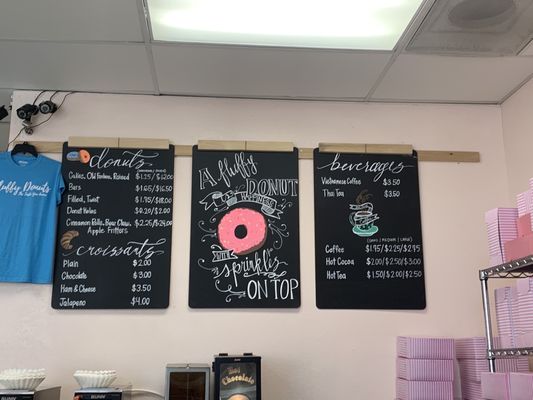 Fluffy Donuts
donuts
Cakes, Old Fashion, Raised $1.25/$12.00
Bars $1.65/$16.50
Filled, Twist $1.75/$18.00
Donut Holes $0.20/$2.00
Cinnamon Rolls, Bear Claw, Apple Fritters $2.25/$24.00
croissants
Plain $2.00
Chocolate $3.00
Ham & Cheese $3.50
Jalapeno $4.00
A fluffy
DONUT
HAPPINESS
with
sprinkles
ON TOP
beverages
Vietnamese Coffee $3.50
Thai Tea $3.50
Coffee $1.75/$2.25/$2.75
Hot Cocoa $2.00/$2.50/$3.00
Hot Tea $1.50/$2.00/$2.50
Hot
Chocolate
BUNN
BUNN